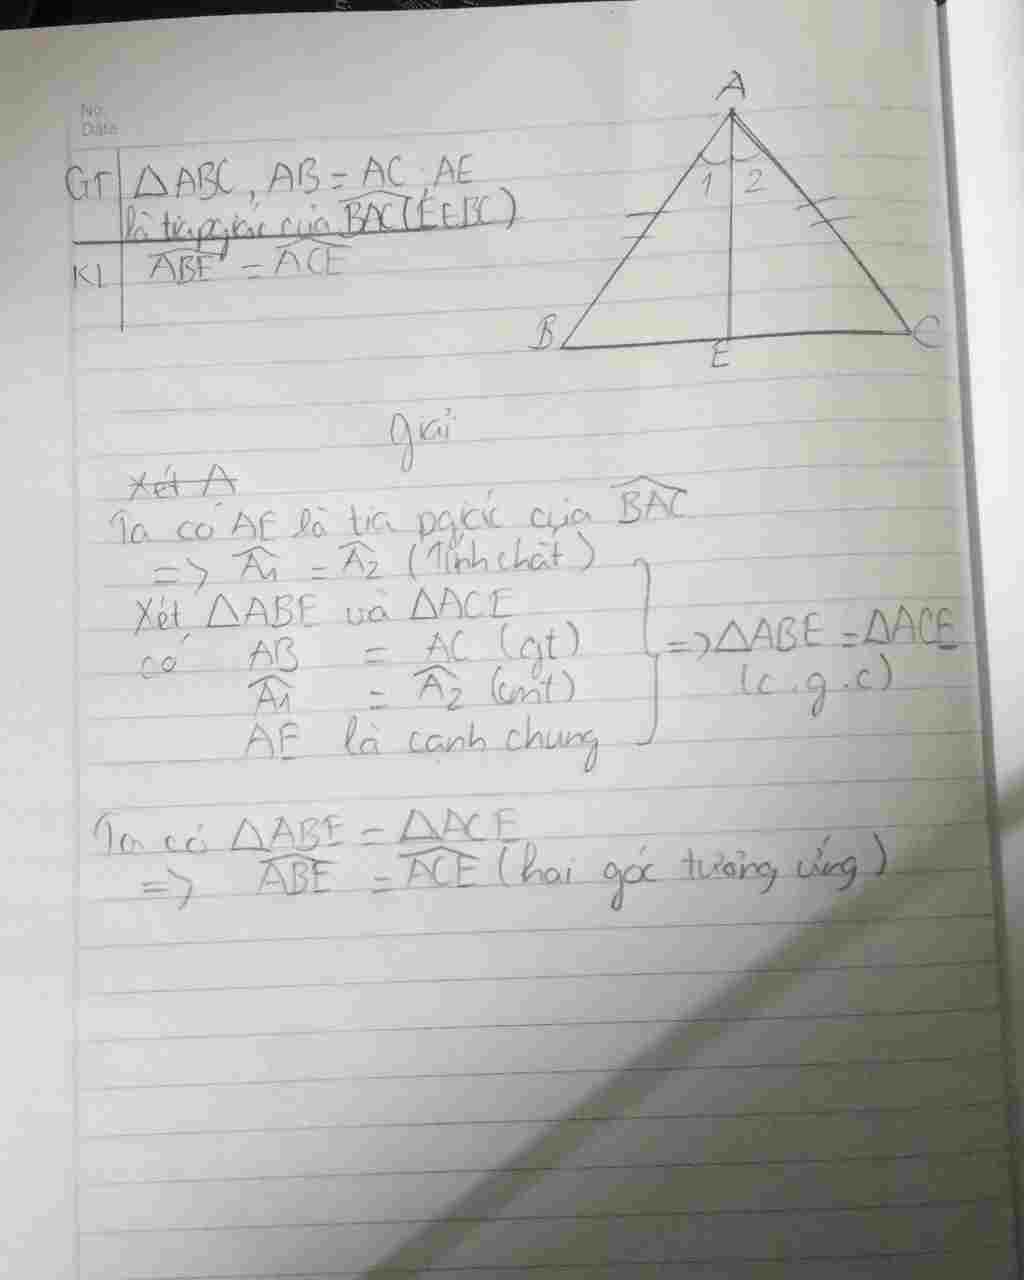 No.
Date
A
GT ΔABC, AB = AC. AE
là tia pgiác của BAC (E∈BC)
KL ABE = ACE
1 2
B E C
giải
Xét Δ
Ta có AE là tia pgiác của BAC
=> A1 = A2 (Tính chất)
Xét ΔABE và ΔACE
có AB = AC (gt)
A1 = A2 (cmt)
AE là cạnh chung
=> ΔABE = ΔACE
(c.g.c)
Ta có ΔABE = ΔACE
=> ABE = ACE (hai góc tương ứng)